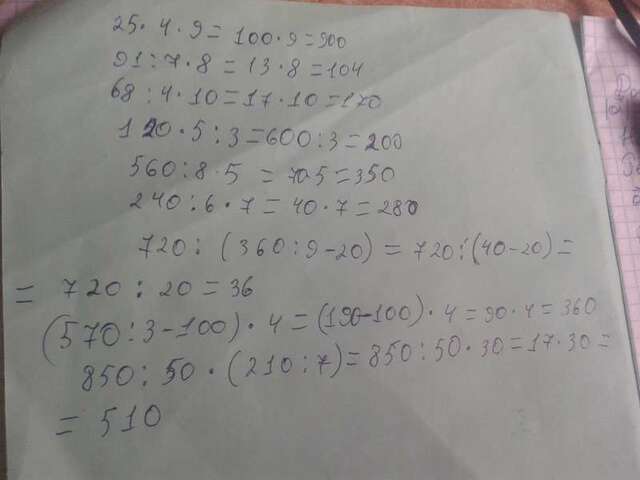 25·4·9=100·9=900
91:7·8=13·8=104
68:4·10=17·10=170
120·5:3=600:3=200
560:8·5=70·5=350
240:6·7=40·7=280
720:(360:9-20)=720:(40-20)=
=720:20=36
(570:3-100)·4=(190-100)·4=90·4=360
850:50·(210:7)=850:50·30=17·30=
=510